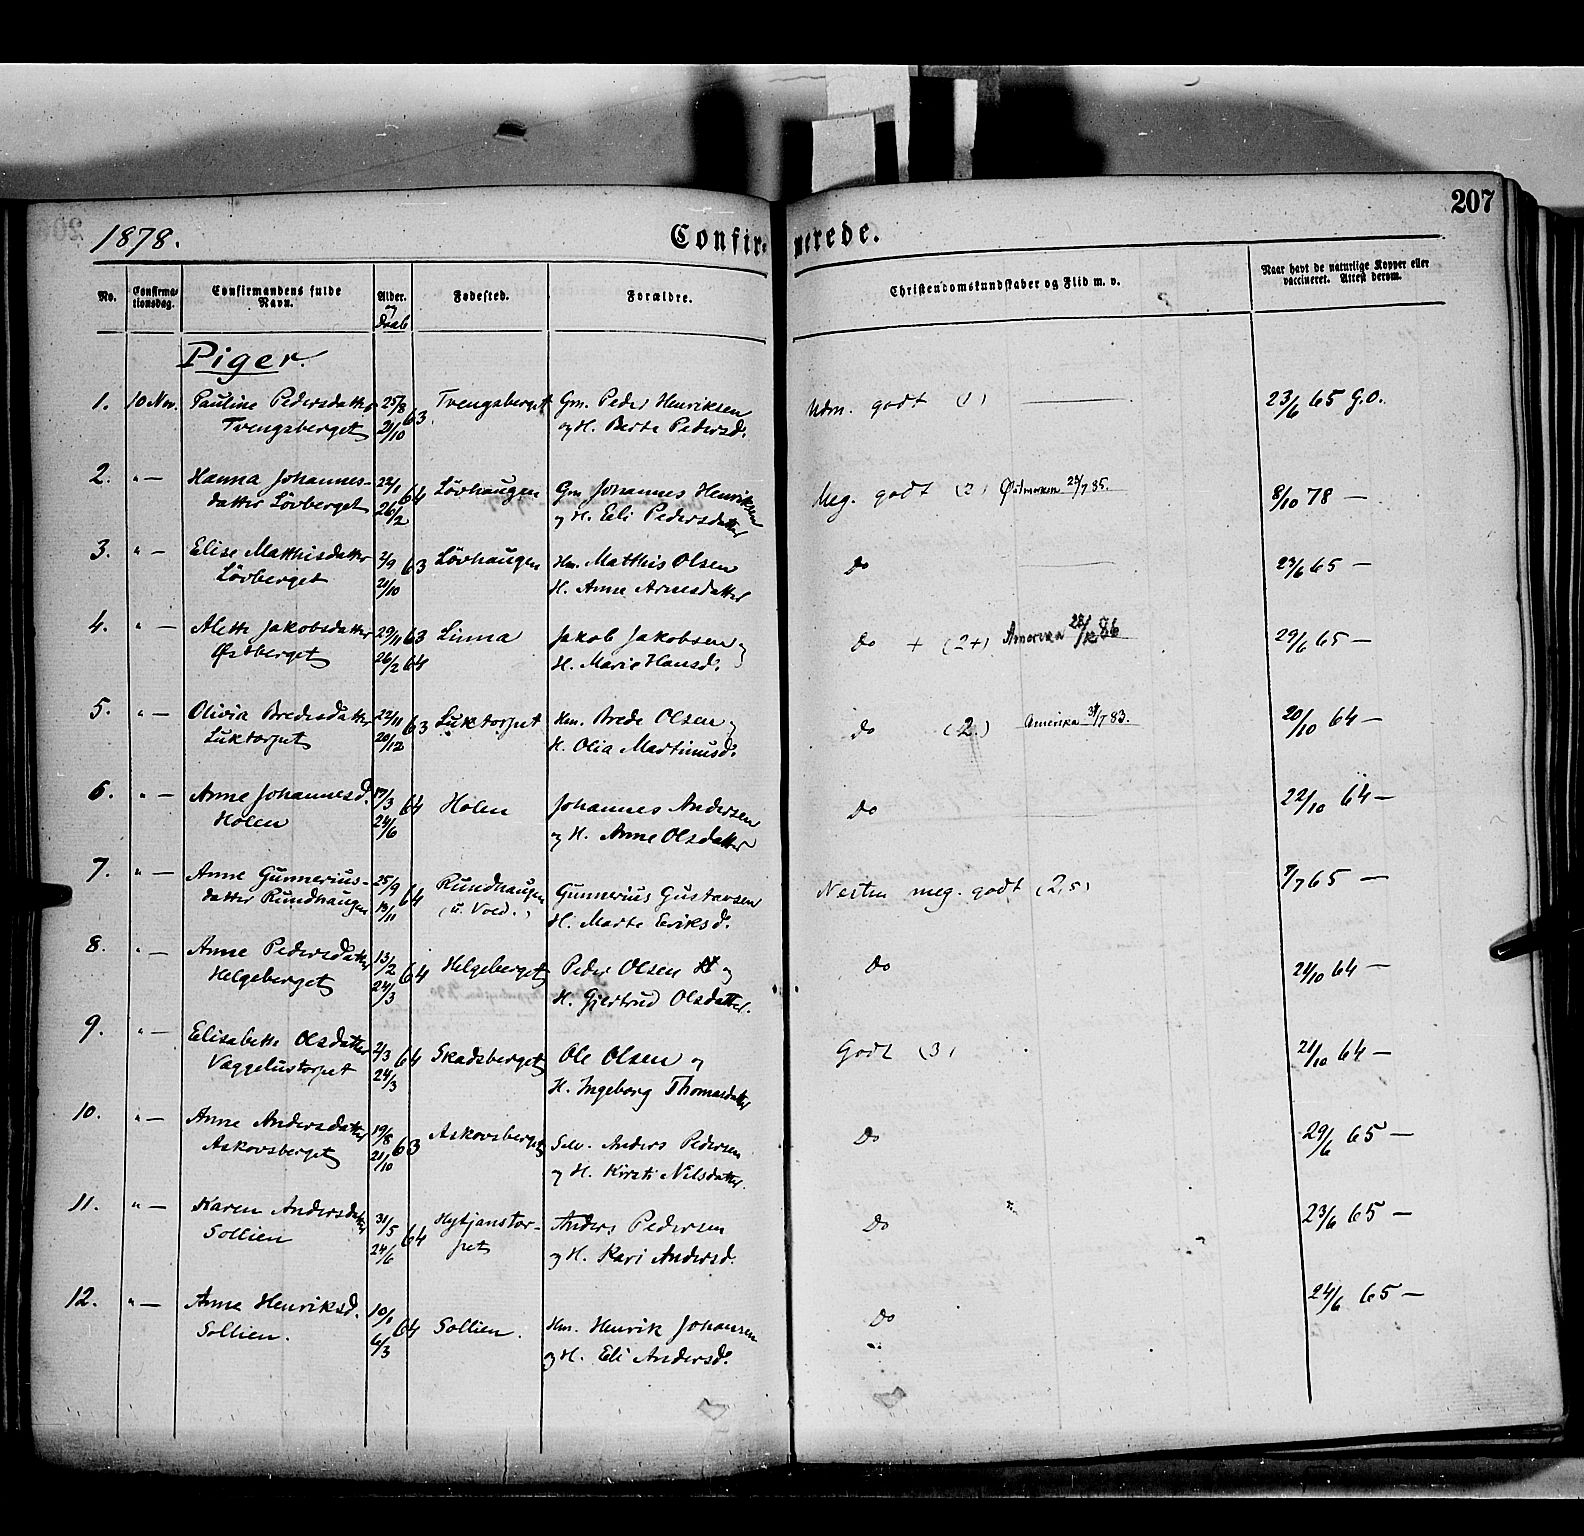 207
1878.
Confirmerede.
No.
Confirma-
tionsdag.
Confirmandens fulde
Navn.
Alder.
og
Daab
Fødested.
Forældre.
Christendomskundskaber og Flid m. v.
Naar havt de naturlige Kopper eller
vaccineret. Attest derom.
Piger.
1. 10 Nov. Pauline Pedersdatter 25/8 63 Tvengsberget Gm. Peder Henriksen Udm. godt (1) 23/6 65 G.O.
Tvengsberget 21/10 og H. Berte Pedersd.
2. " — Hanna Johannes- 22/1 64 Lövhaugen Gm Johannes Henriksen Meg. godt (2) Östmarken 23/7 85. 8/10 78 —
datter Lövberget 26/2 og H. Eli Pedersdatter
3. " — Elise Matthisdatter 2/9 63 Lövhaugen Hm. Matthis Olsen Do 23/6 65 —
Lövberget 21/10 H. Anne Arnesdatter
4. " — Alette Jakobsdatter 29/11 63 Linna Jakob Jakobsen og Do + (2+) Amerika 86 29/6 65 —
Østberget 26/2 64 H. Marie Hansd.
5. " — Olivia Bredesdatter 22/11 63 Luktorpet Hm. Brede Olsen og Do (2.) Amerika 31/7 83. 20/10 64 —
Luktorpet 20/12 H. Olia Martinusd.
6. " — Anne Johannesd. 17/3 64 Holen Johannes Andersen Do 22/10 64 —
Holen 24/6 og H. Anne Olsdatter
7. " — Anne Gunnerius- 25/9 64 Rundhaugen Gunnerius Gustavsen Nesten meg. godt (2,5) 7/7 65 —
datter Rundhaugen 13/11 (u. Vold.) H. Marte Eriksd.
8. " — Anne Pedersdatter 13/2 64 Helgeberget Peder Olsen og Do 21/10 64 —
Helgeberget 24/3 H. Gjertrud Olsdatter.
9. " — Elisabette Olsdatter 2/3 64 Skadsberget Ole Olsen og Godt (3) 21/10 64 —
Væggelustorpet 24/3 H. Ingeborg Thomasdatter
10. " — Anne Andersdatter 19/8 63 Askovsberget Selv. Anders Pedersen Do 29/6 65 —
Askovsberget 21/10 og H. Kirsti Nilsdatter.
11. " — Karen Andersdatter 31/5 64 Hytjanstor- Anders Pedersen Do 23/6 65 —
Sollien 24/6 pet og H. Kari Andersd.
12. " — Anne Henriksd. 10/1 64 Sollien. Hm. Henrik Johansen Do 24/6 65 —
Sollien. 6/3 og H. Eli Andersd.